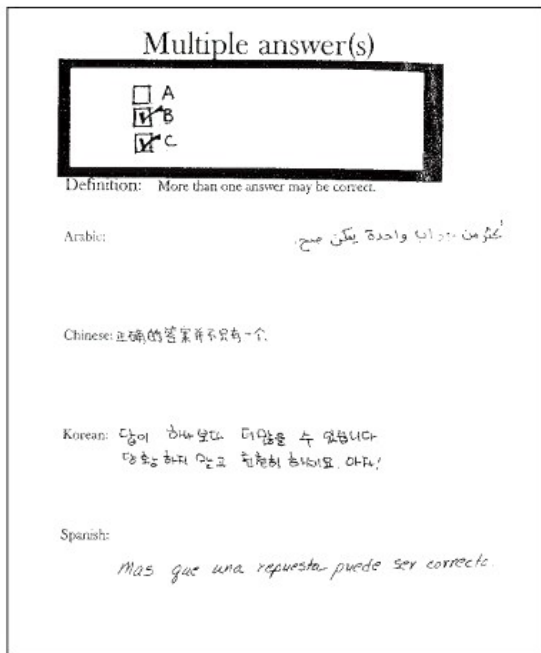 Multiple answer(s)
A
B
C
Definition: More than one answer may be correct.
Arabic:
أكثر من جواب واحدة يمكن صح.
Chinese: 正确的答案并不只有一个.
Korean: 답이 하나보다 더많을 수 있습니다
당황하지 말고 천천히 하세요. 아자!
Spanish:
Mas que una repuesta puede ser correcta.